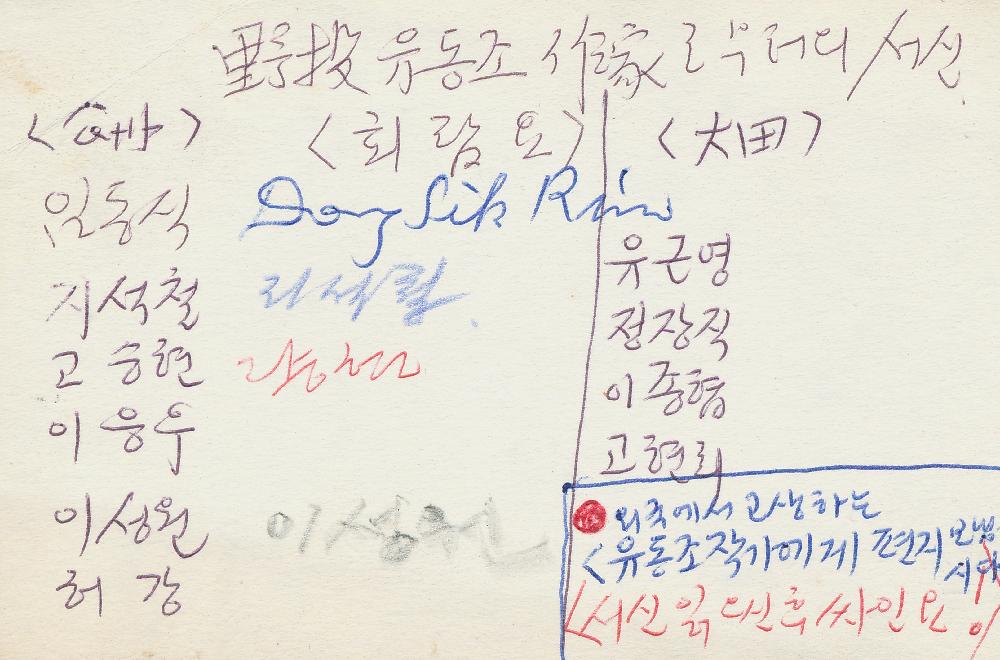 野投 유동조 作家로부터의 서신
<회람요>
임동식 Dong Sik Rim
지석철
고승현
이응우
이성원 이성원
허강
<大田>
유근영
정장직
이종협
고현희
외국에서 고생하는
<유동조작가에게 편지 보냅시다
<서신 읽으신 후 싸인 요